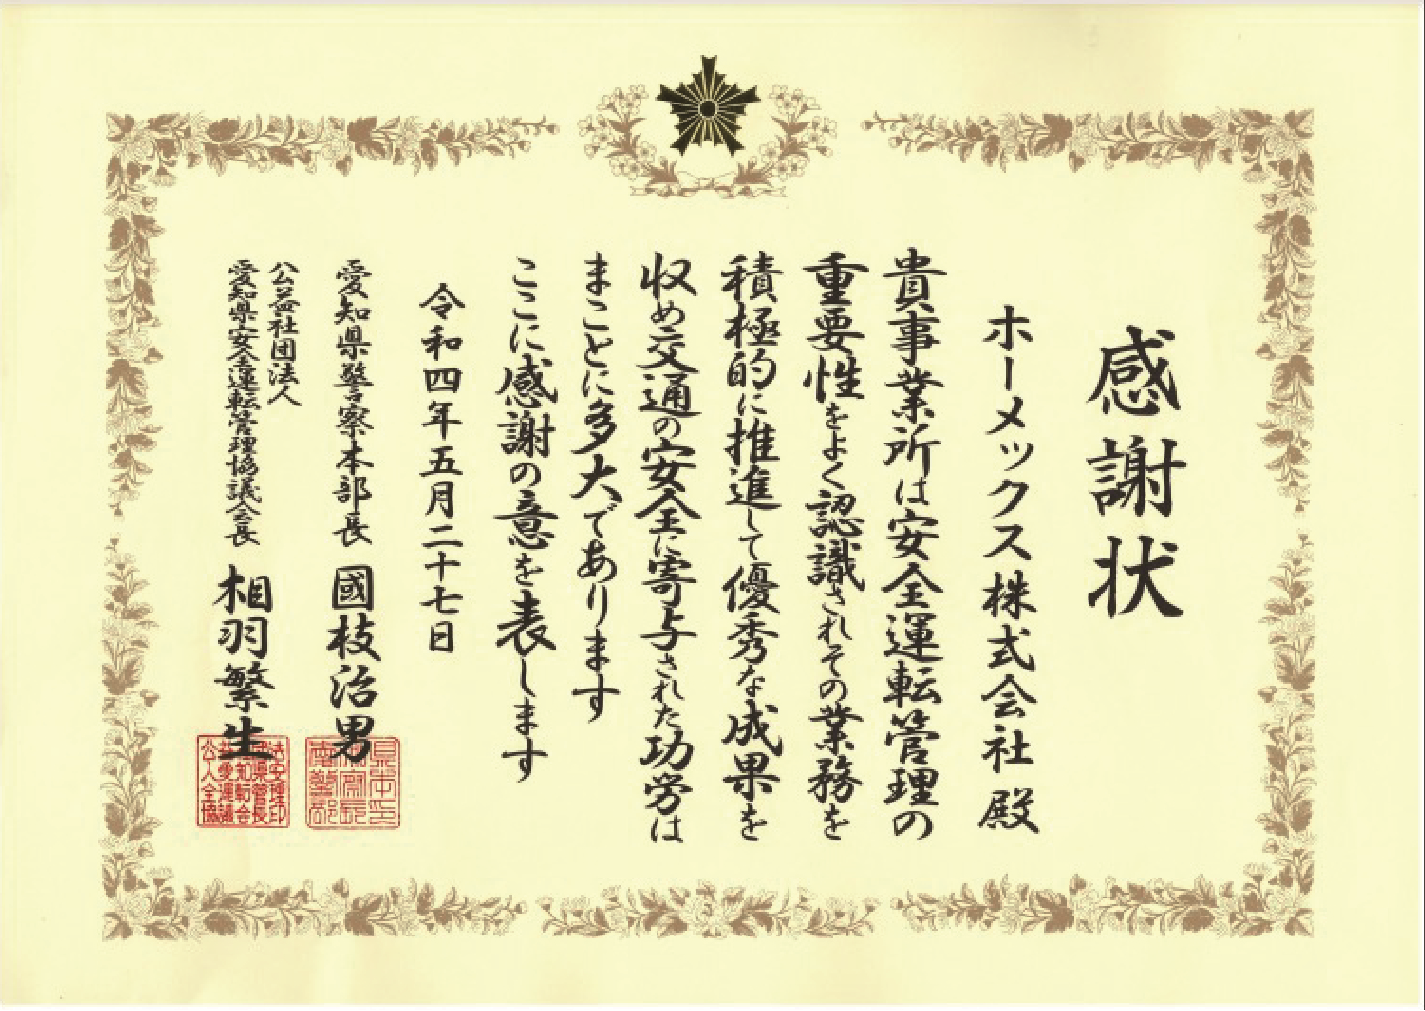 感謝状
ホーメックス株式会社 殿
貴事業所は安全運転管理の
重要性をよく認識されその業務を
積極的に推進して優秀な成果を
収め交通の安全に寄与された功労は
まことに多大であります
ここに感謝の意を表します
令和四年五月二十七日
愛知県警察本部長 國枝治男
公益社団法人
愛知県安全運転管理協議会長 相羽繁生